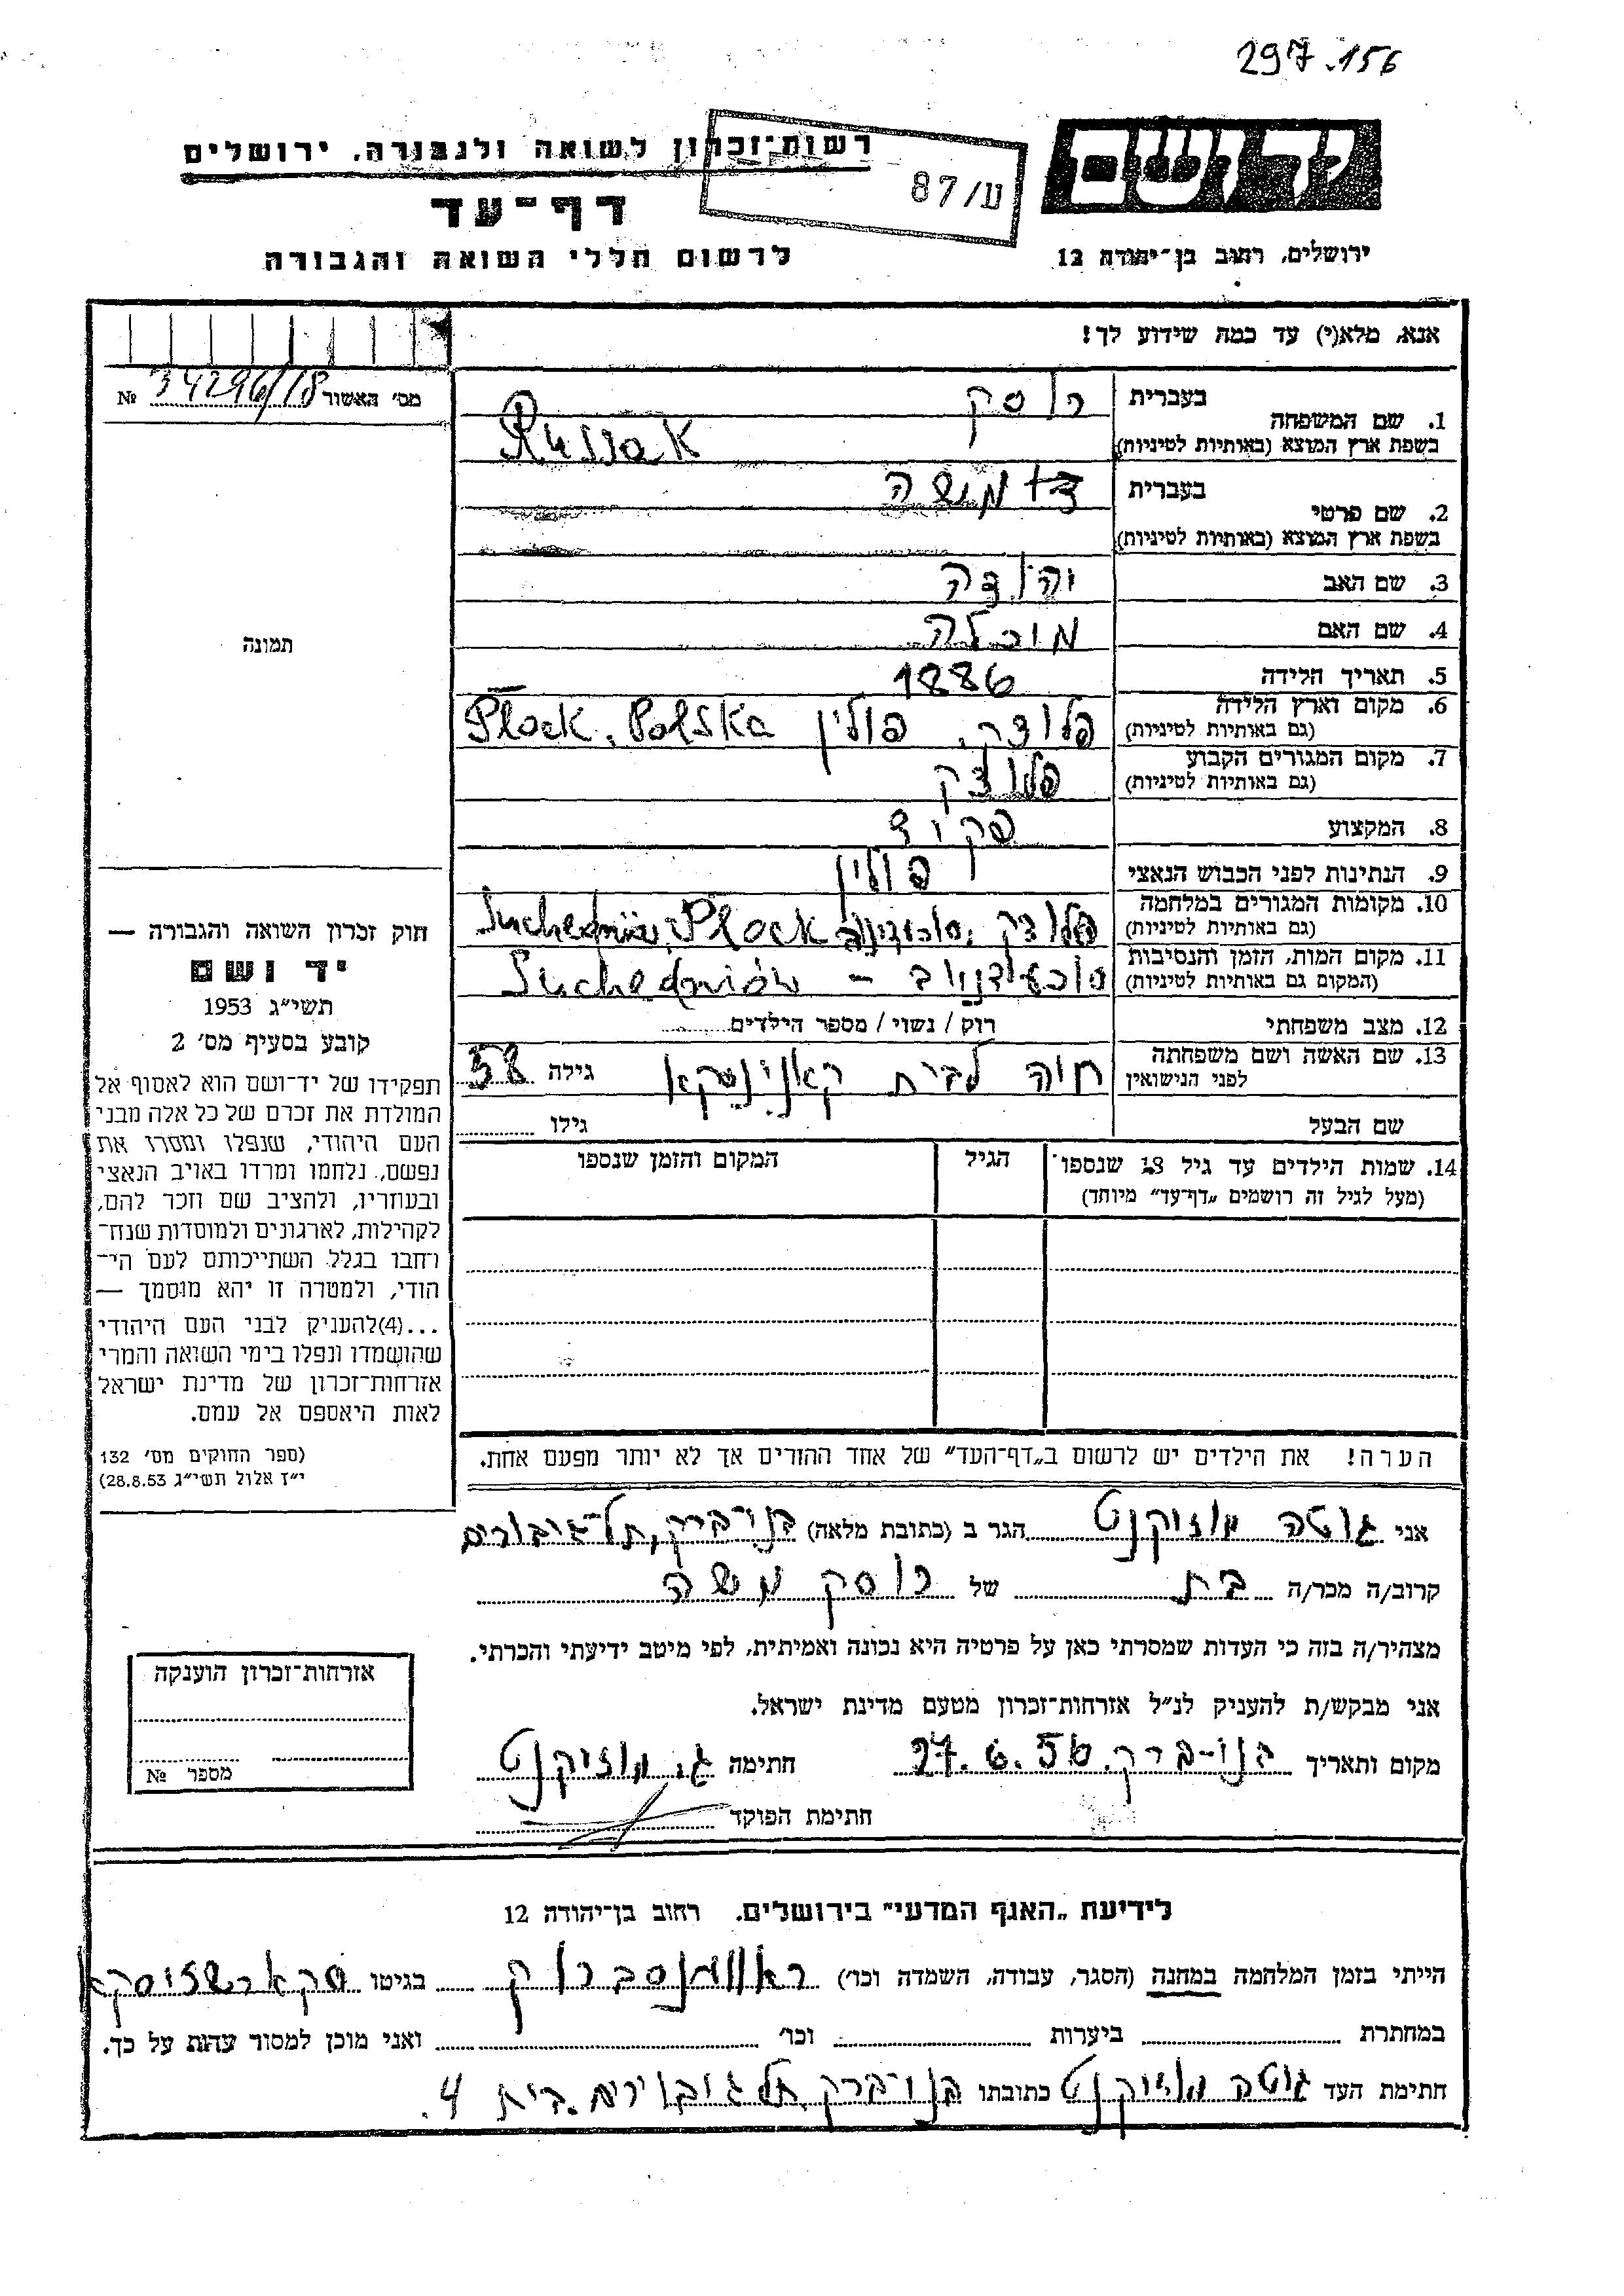 297.156
יד ושם
רשות־זכרון לשואה ולגבורה, ירושלים
ע/87
דף־עד
ירושלים, רחוב בן־יהודה 12
לרשום חללי השואה והגבורה
אנא, מלא(י) עד כמה שידוע לך!
מס' האשור 34296/18 №
1. שם המשפחה
בעברית רוסק
בשפת ארץ המוצא (באותיות לטיניות) Russak
2. שם פרטי
בעברית משה
בשפת ארץ המוצא (באותיות לטיניות)
3. שם האב יהודה
4. שם האם
5. תאריך הלידה 1886
6. מקום וארץ הלידה פלוצק, פולין Płock, Polska
(גם באותיות לטיניות)
7. מקום המגורים הקבוע פלוצק
(גם באותיות לטיניות)
8. המקצוע פקיד
9. הנתינות לפני הכבוש הנאצי פולין
10. מקומות המגורים במלחמה פלוצק, Suchedniów, Płock
(גם באותיות לטיניות)
11. מקום המות, הזמן והנסיבות Suchedniów –
(המקום גם באותיות לטיניות)
12. מצב משפחתי רוק / נשוי / מספר הילדים
13. שם האשה ושם משפחתה חוה לבית גילה 58
לפני הנישואין
שם הבעל גילו
14. שמות הילדים עד גיל 18 שנספו הגיל המקום והזמן שנספו
(מעל לגיל זה רושמים „דף־עד" מיוחד)
הערה! את הילדים יש לרשום ב„דף־העד" של אחד ההורים אך לא יותר מפעם אחת.
תמונה
חוק זכרון השואה והגבורה —
יד ושם
תשי"ג 1953
קובע בסעיף מס' 2
תפקידו של יד־ושם הוא לאסוף אל
המולדת את זכרם של כל אלה מבני
העם היהודי, שנפלו ומסרו את
נפשם, נלחמו ומרדו באויב הנאצי
ובעוזריו, ולהציב שם וזכר להם,
לקהילות, לארגונים ולמוסדות שנח־
רחבו בגלל השתייכותם לעם הי־
הודי, ולמטרה זו יהא מוסמך —
...(4)להעניק לבני העם היהודי
שהושמדו ונפלו בימי השואה והמרי
אזרחות־זכרון של מדינת ישראל
לאות היאספם אל עמם.
(ספר החוקים מס' 132
י"ז אלול תשי"ג 28.8.53)
אני גוטה מוזיקנט הגר ב (כתובת מלאה) בני־ברק, תל־גיבורים
קרוב/ה מכר/ה בת של רוסק משה
מצהיר/ה בזה כי העדות שמסרתי כאן על פרטיה היא נכונה ואמיתית, לפי מיטב ידיעתי והכרתי.
אני מבקש/ת להעניק לנ"ל אזרחות־זכרון מטעם מדינת ישראל.
מקום ותאריך בני־ברק. 27.6.56 חתימה ג. מוזיקנט
חתימת הפוקד
אזרחות־זכרון הוענקה
מספר №
לידיעת „האגף המדעי" בירושלים, רחוב בן־יהודה 12
הייתי בזמן המלחמה במחנה (הסגר, עבודה, השמדה וכו') ראוונסברוק בגיטו סקארשזיסקא
במחתרת ביערות וכו' ואני מוכן למסור עדות על כך.
חתימת העד גוטה מוזיקנט כתובתו בני־ברק תל גיבורים בית 4.